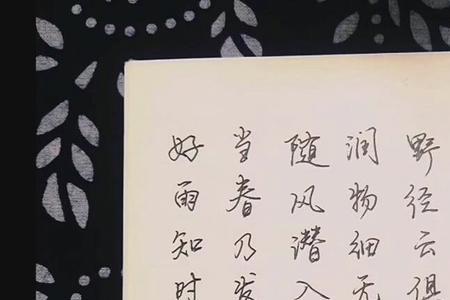 好雨知时
当春乃发
随风潜入
润物细无
野径云俱